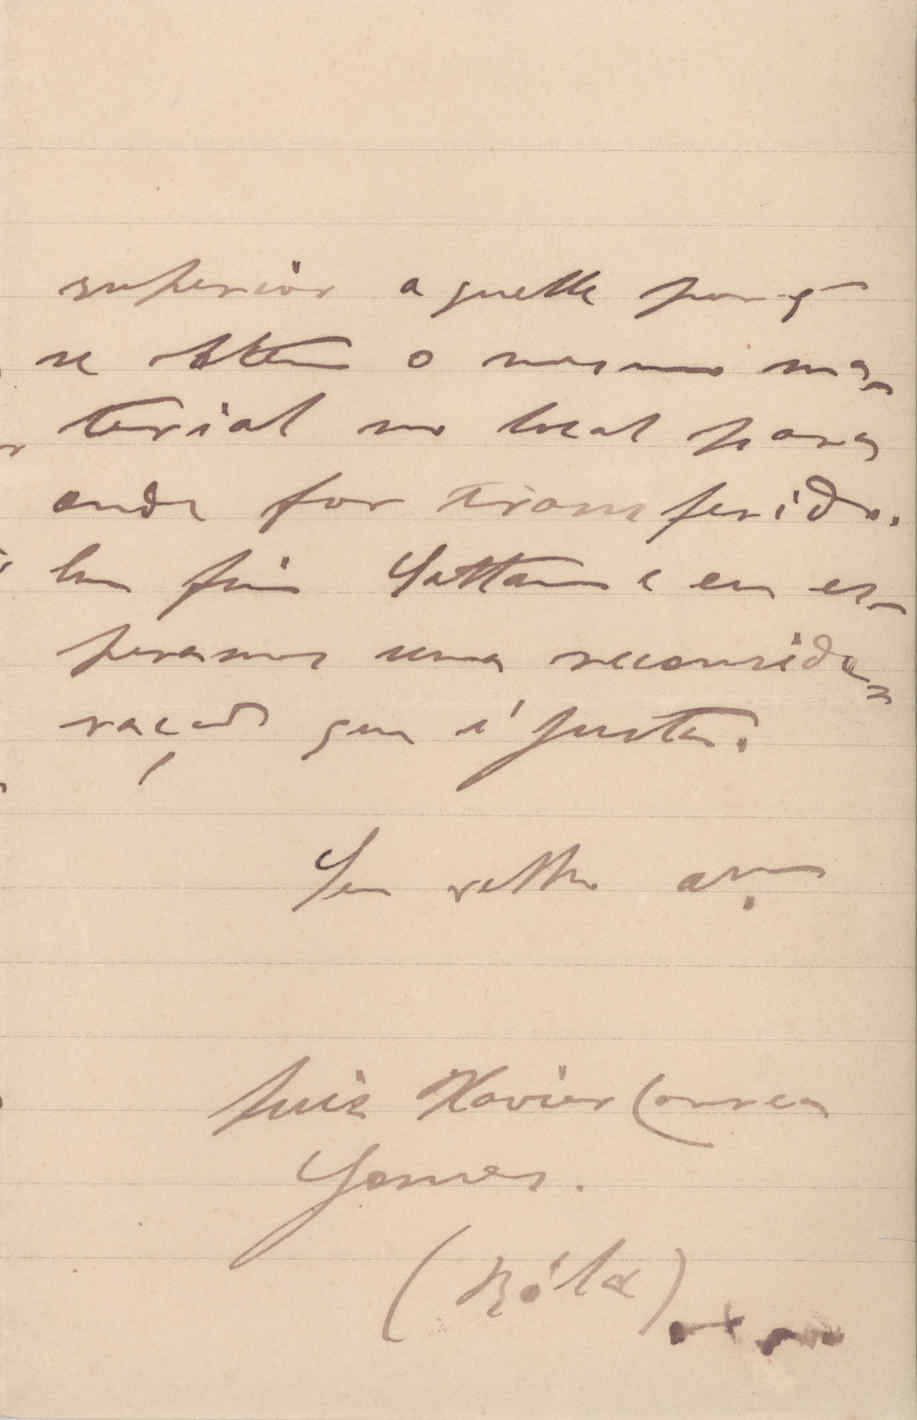 superior a quelle por q
se obtem o mesmo ma-
terial no local para
onde for transferido.
Em fim Gattam e eu es-
peramos uma reconside-
ração que é justa.
Seu velho am.
Luis Xavier Correa
Gomes.
(Bóla)